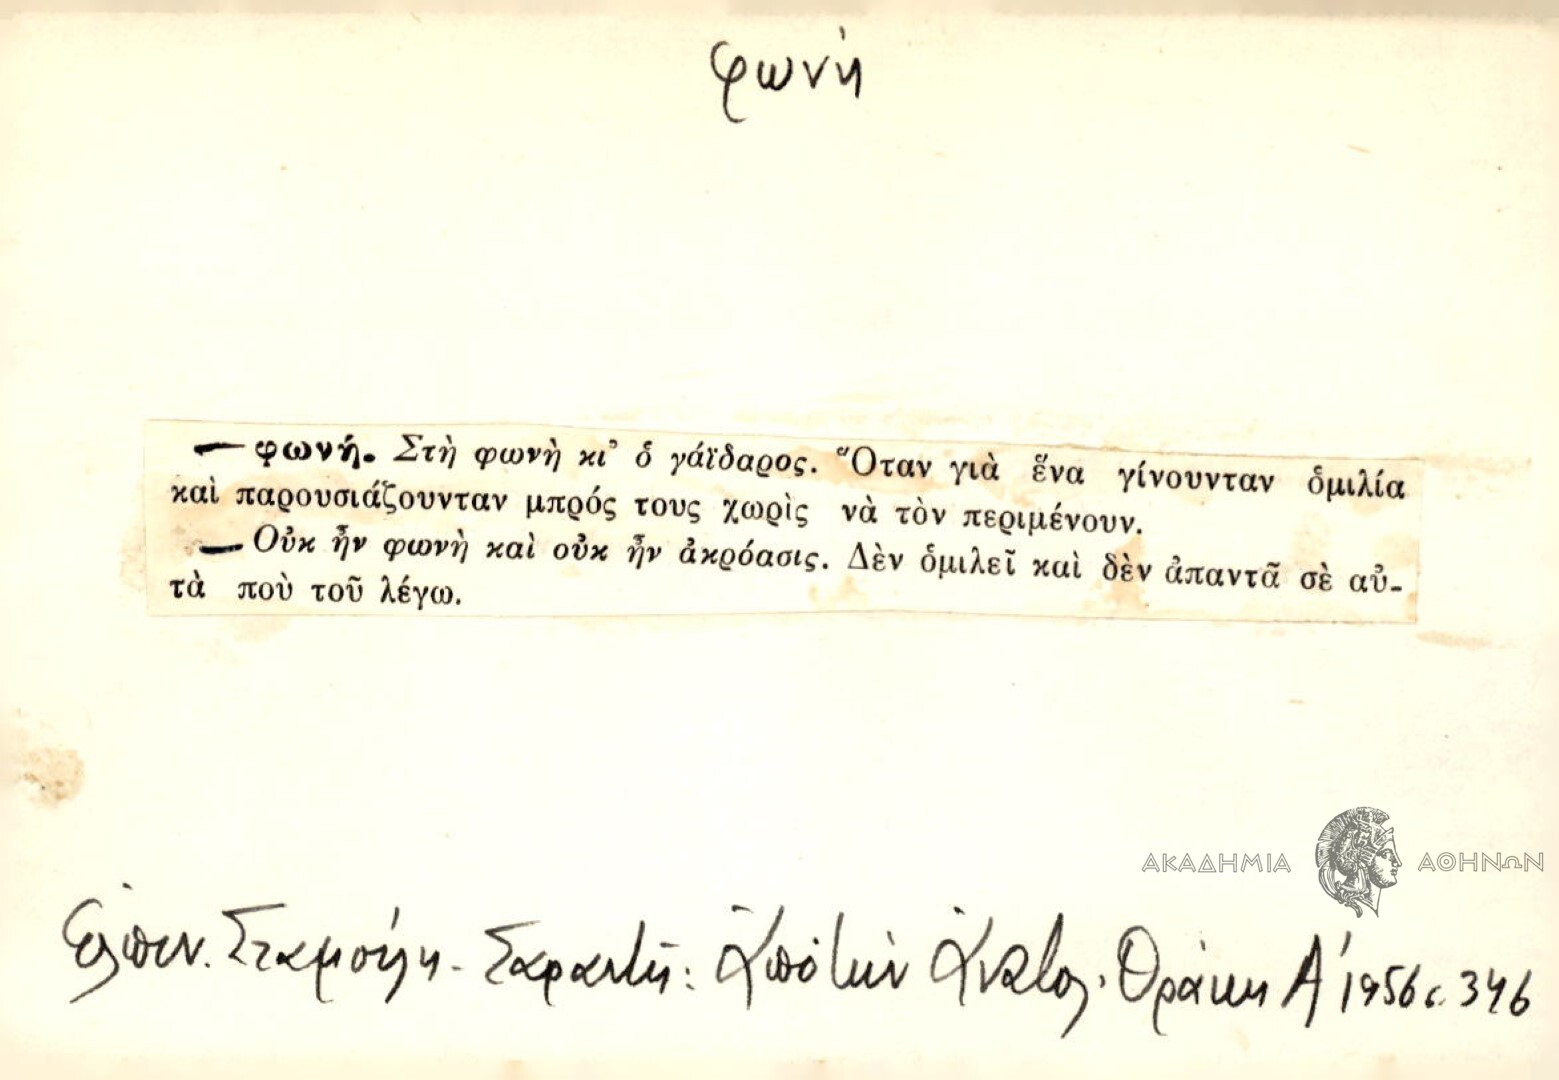 φωνή
— φωνή. Στὴ φωνὴ κι᾿ ὁ γάϊδαρος. Ὅταν γιὰ ἕνα γίνουνταν ὁμιλία
καὶ παρουσιάζουνταν μπρός τους χωρὶς νὰ τὸν περιμένουν.
— Οὐκ ἦν φωνὴ καὶ οὐκ ἦν ἀκρόασις. Δὲν ὁμιλεῖ καὶ δὲν ἀπαντᾶ σὲ αὐ-
τὰ ποὺ τοῦ λέγω.
ΑΚΑΔΗΜΙΑ ΑΘΗΝΩΝ
Ἐλπιν. Σταμούλη - Σαραντῆ: Ἀπὸ τὴν Ἀνατολ. Θράκη Α' 1956 σ. 346